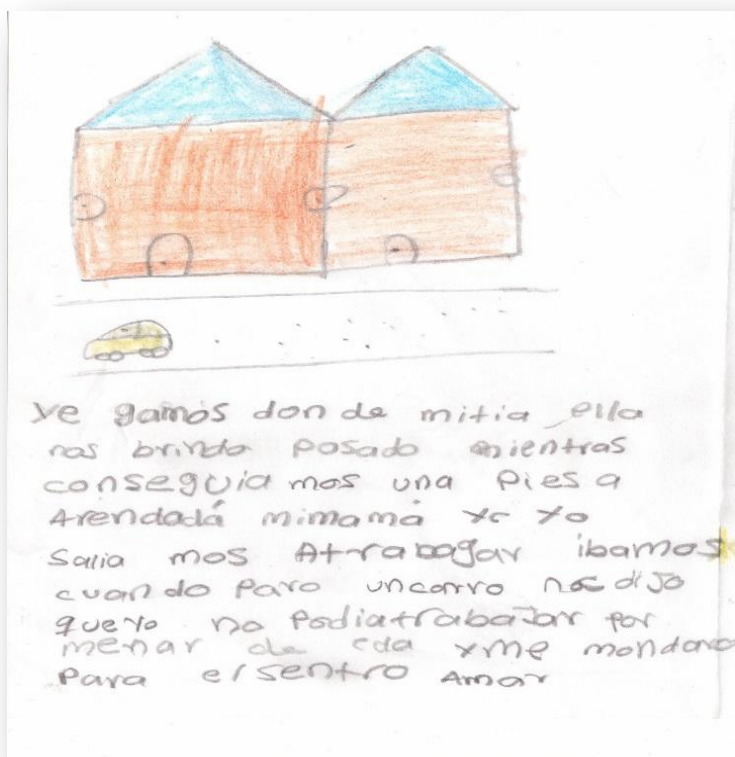 ye gamos don de mitia ella
nos brindo Posado mientras
conseguia mos una Pies a
Arendadá mimamá yc yo
salia mos Atrabagar ibamos
cuan do Paro uncarro nos dijo
queyo no Podiatrabajar por
menar de eda yme mondaro
Para elsentro Amar